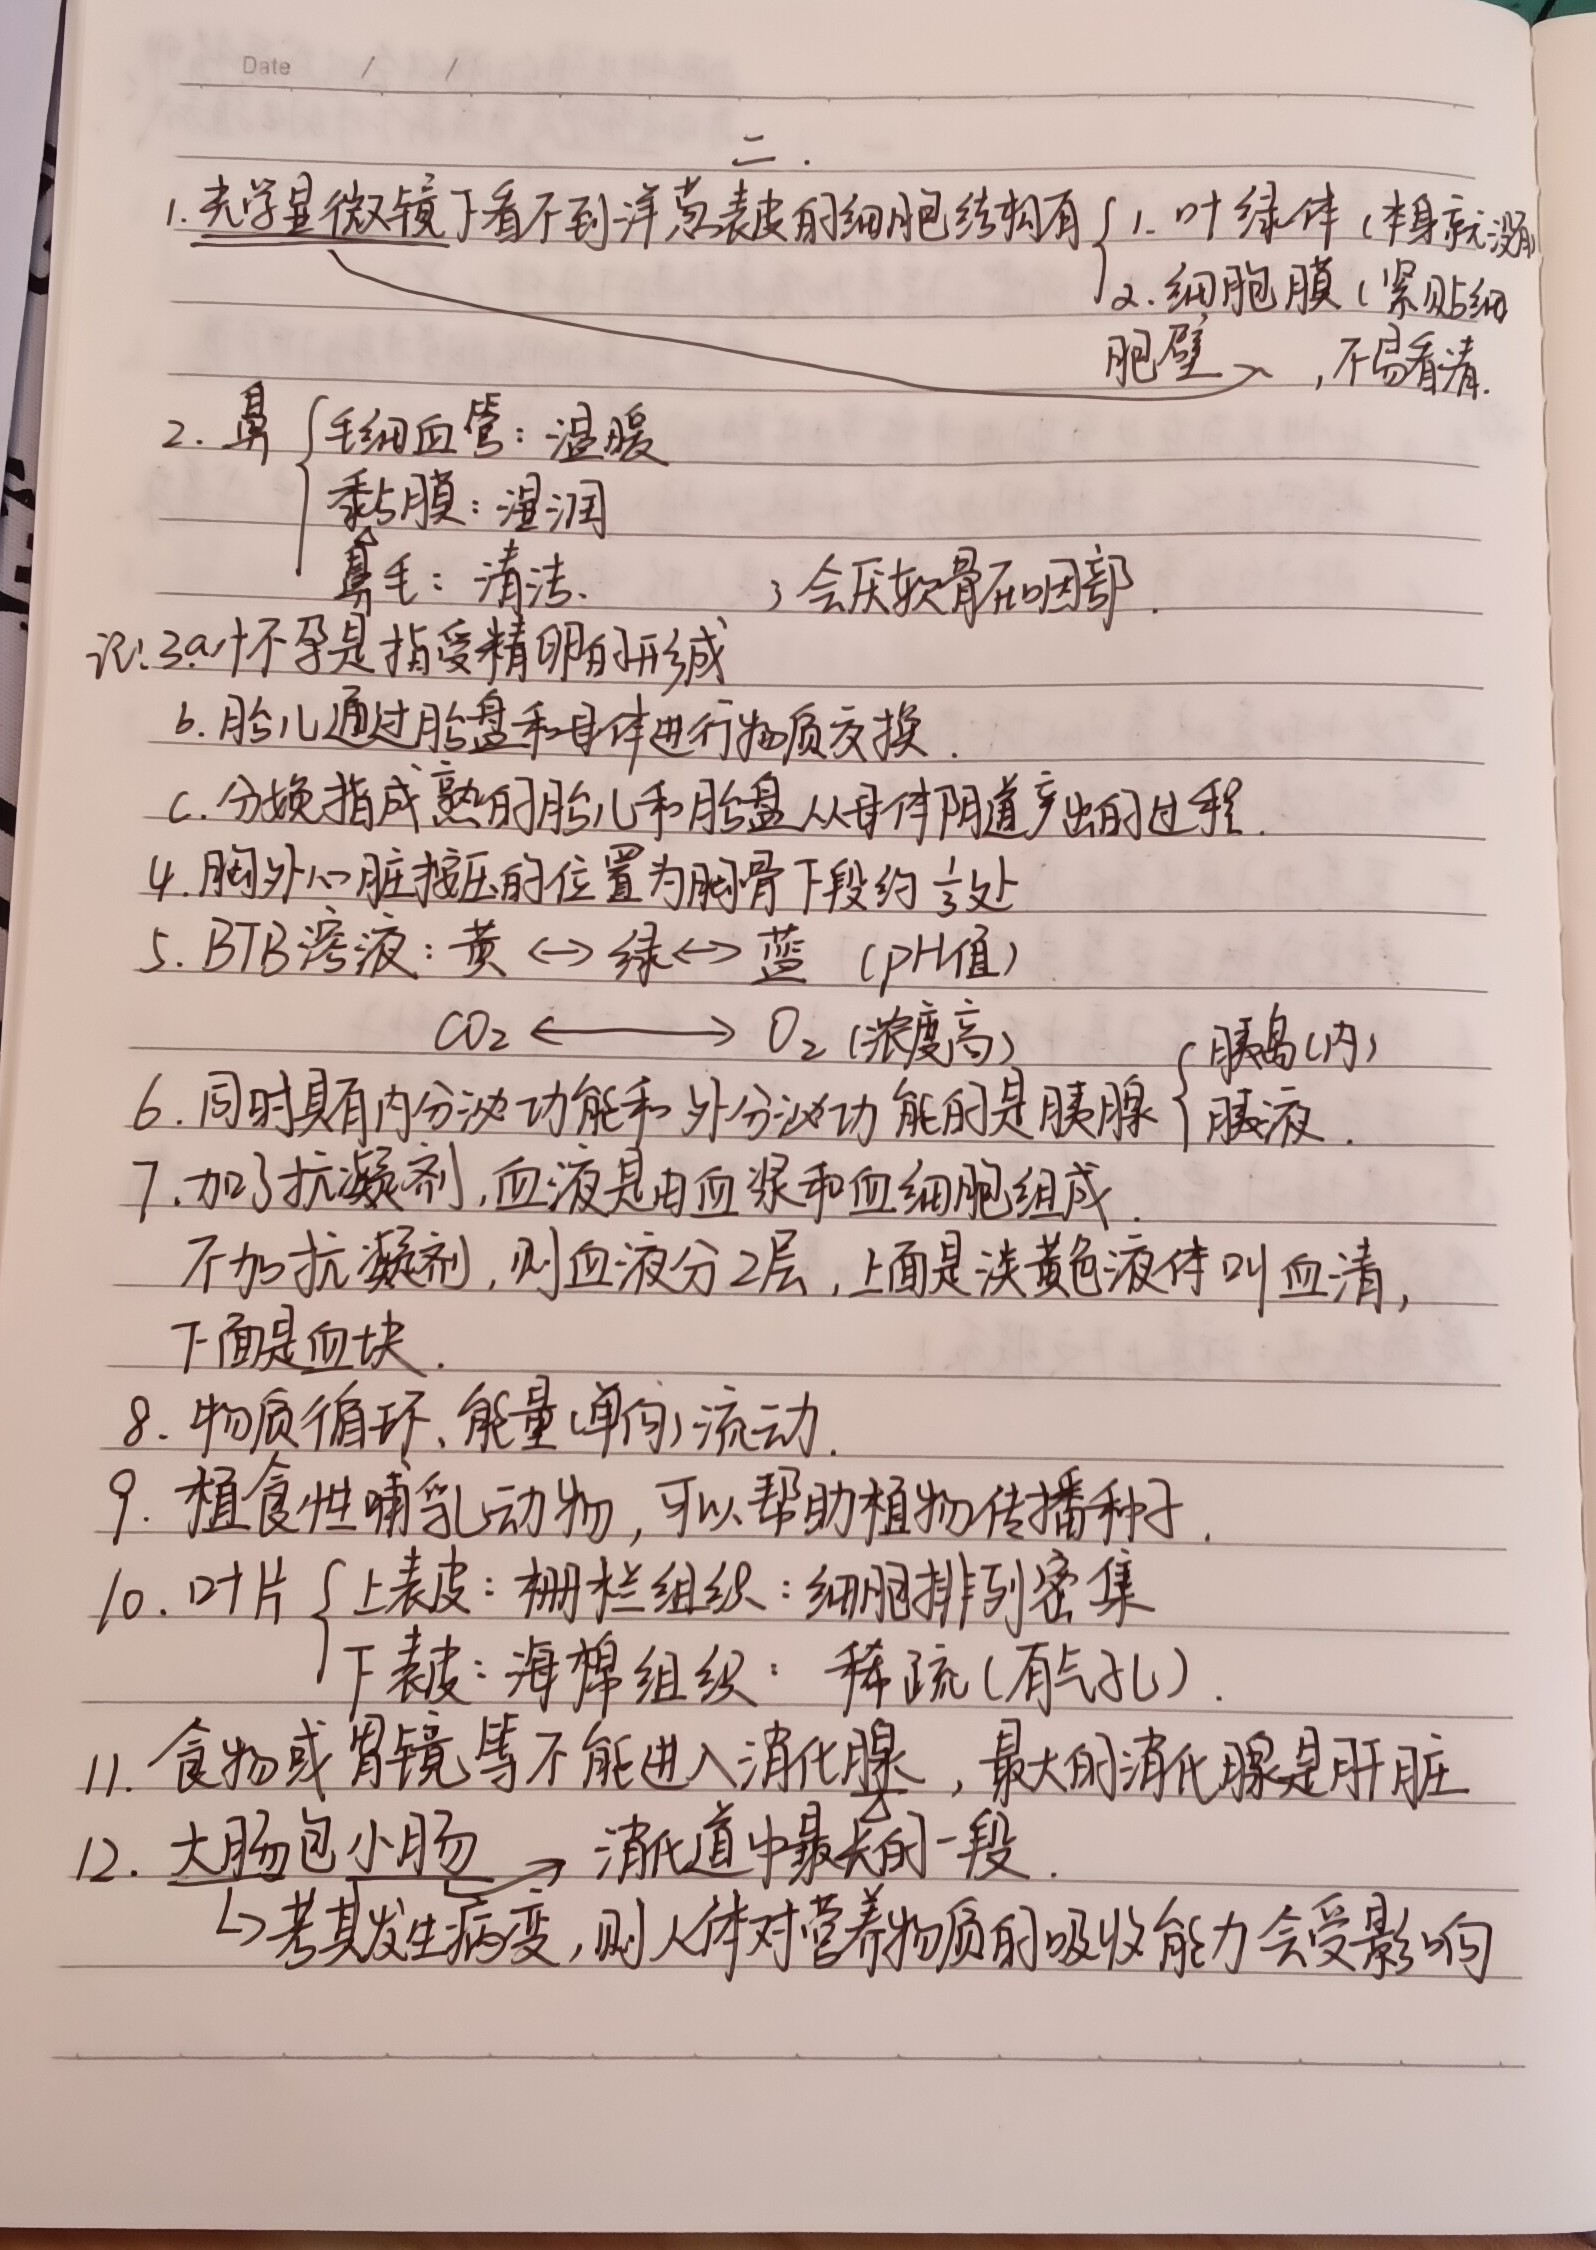 Date / /
二.
1.光学显微镜下看不到洋葱表皮的细胞结构有 { 1.叶绿体(本身就没有)
2.细胞膜(紧贴细
胞壁 ,不易看清.
2.鼻 { 毛细血管:温暖
黏膜:湿润
鼻毛:清洁. ; 会厌软骨在咽部.
记:3.a.怀孕是指受精卵的形成
b.胎儿通过胎盘和母体进行物质交换.
c.分娩指成熟的胎儿和胎盘从母体阴道产出的过程.
4.胸外心脏按压的位置为胸骨下段约1/3处
5.BTB溶液:黄↔绿↔蓝 (pH值)
CO₂ ⟷ O₂(浓度高)
6.同时具有内分泌功能和外分泌功能的是胰腺 { 胰岛(内)
胰液.
7.加了抗凝剂,血液是由血浆和血细胞组成.
不加抗凝剂,则血液分2层,上面是淡黄色液体叫血清,
下面是血块.
8.物质循环、能量(单向)流动.
9.植食性哺乳动物,可以帮助植物传播种子.
10.叶片 { 上表皮:栅栏组织:细胞排列密集
下表皮:海棉组织: 稀疏(有气孔).
11.食物或胃镜等不能进入消化腺,最大的消化腺是肝脏
12.大肠包小肠 → 消化道中最长的一段.
↳考其发生病变,则人体对营养物质的吸收能力会受影响